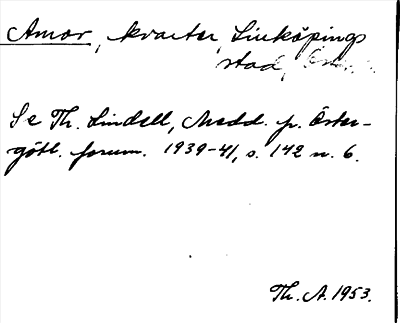 Amor, kvarter, Linköpings
stad,
Se Th. Lindell, Medd. fr. Öster-
götl. fornm. 1939-41, s. 142 n. 6.
Th. A. 1953.